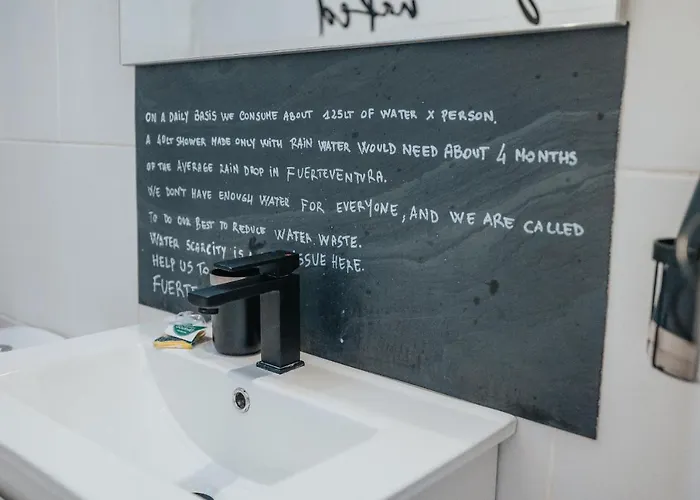 naked
ON A DAILY BASIS WE CONSUME ABOUT 125LT OF WATER X PERSON.
A 40LT SHOWER MADE ONLY WITH RAIN WATER WOULD NEED ABOUT 4 MONTHS
OF THE AVERAGE RAIN DROP IN FUERTEVENTURA.
WE DON'T HAVE ENOUGH WATER FOR EVERYONE, AND WE ARE CALLED
TO DO OUR BEST TO REDUCE WATER WASTE.
WATER SCARCITY IS ISSUE HERE.
HELP US TO